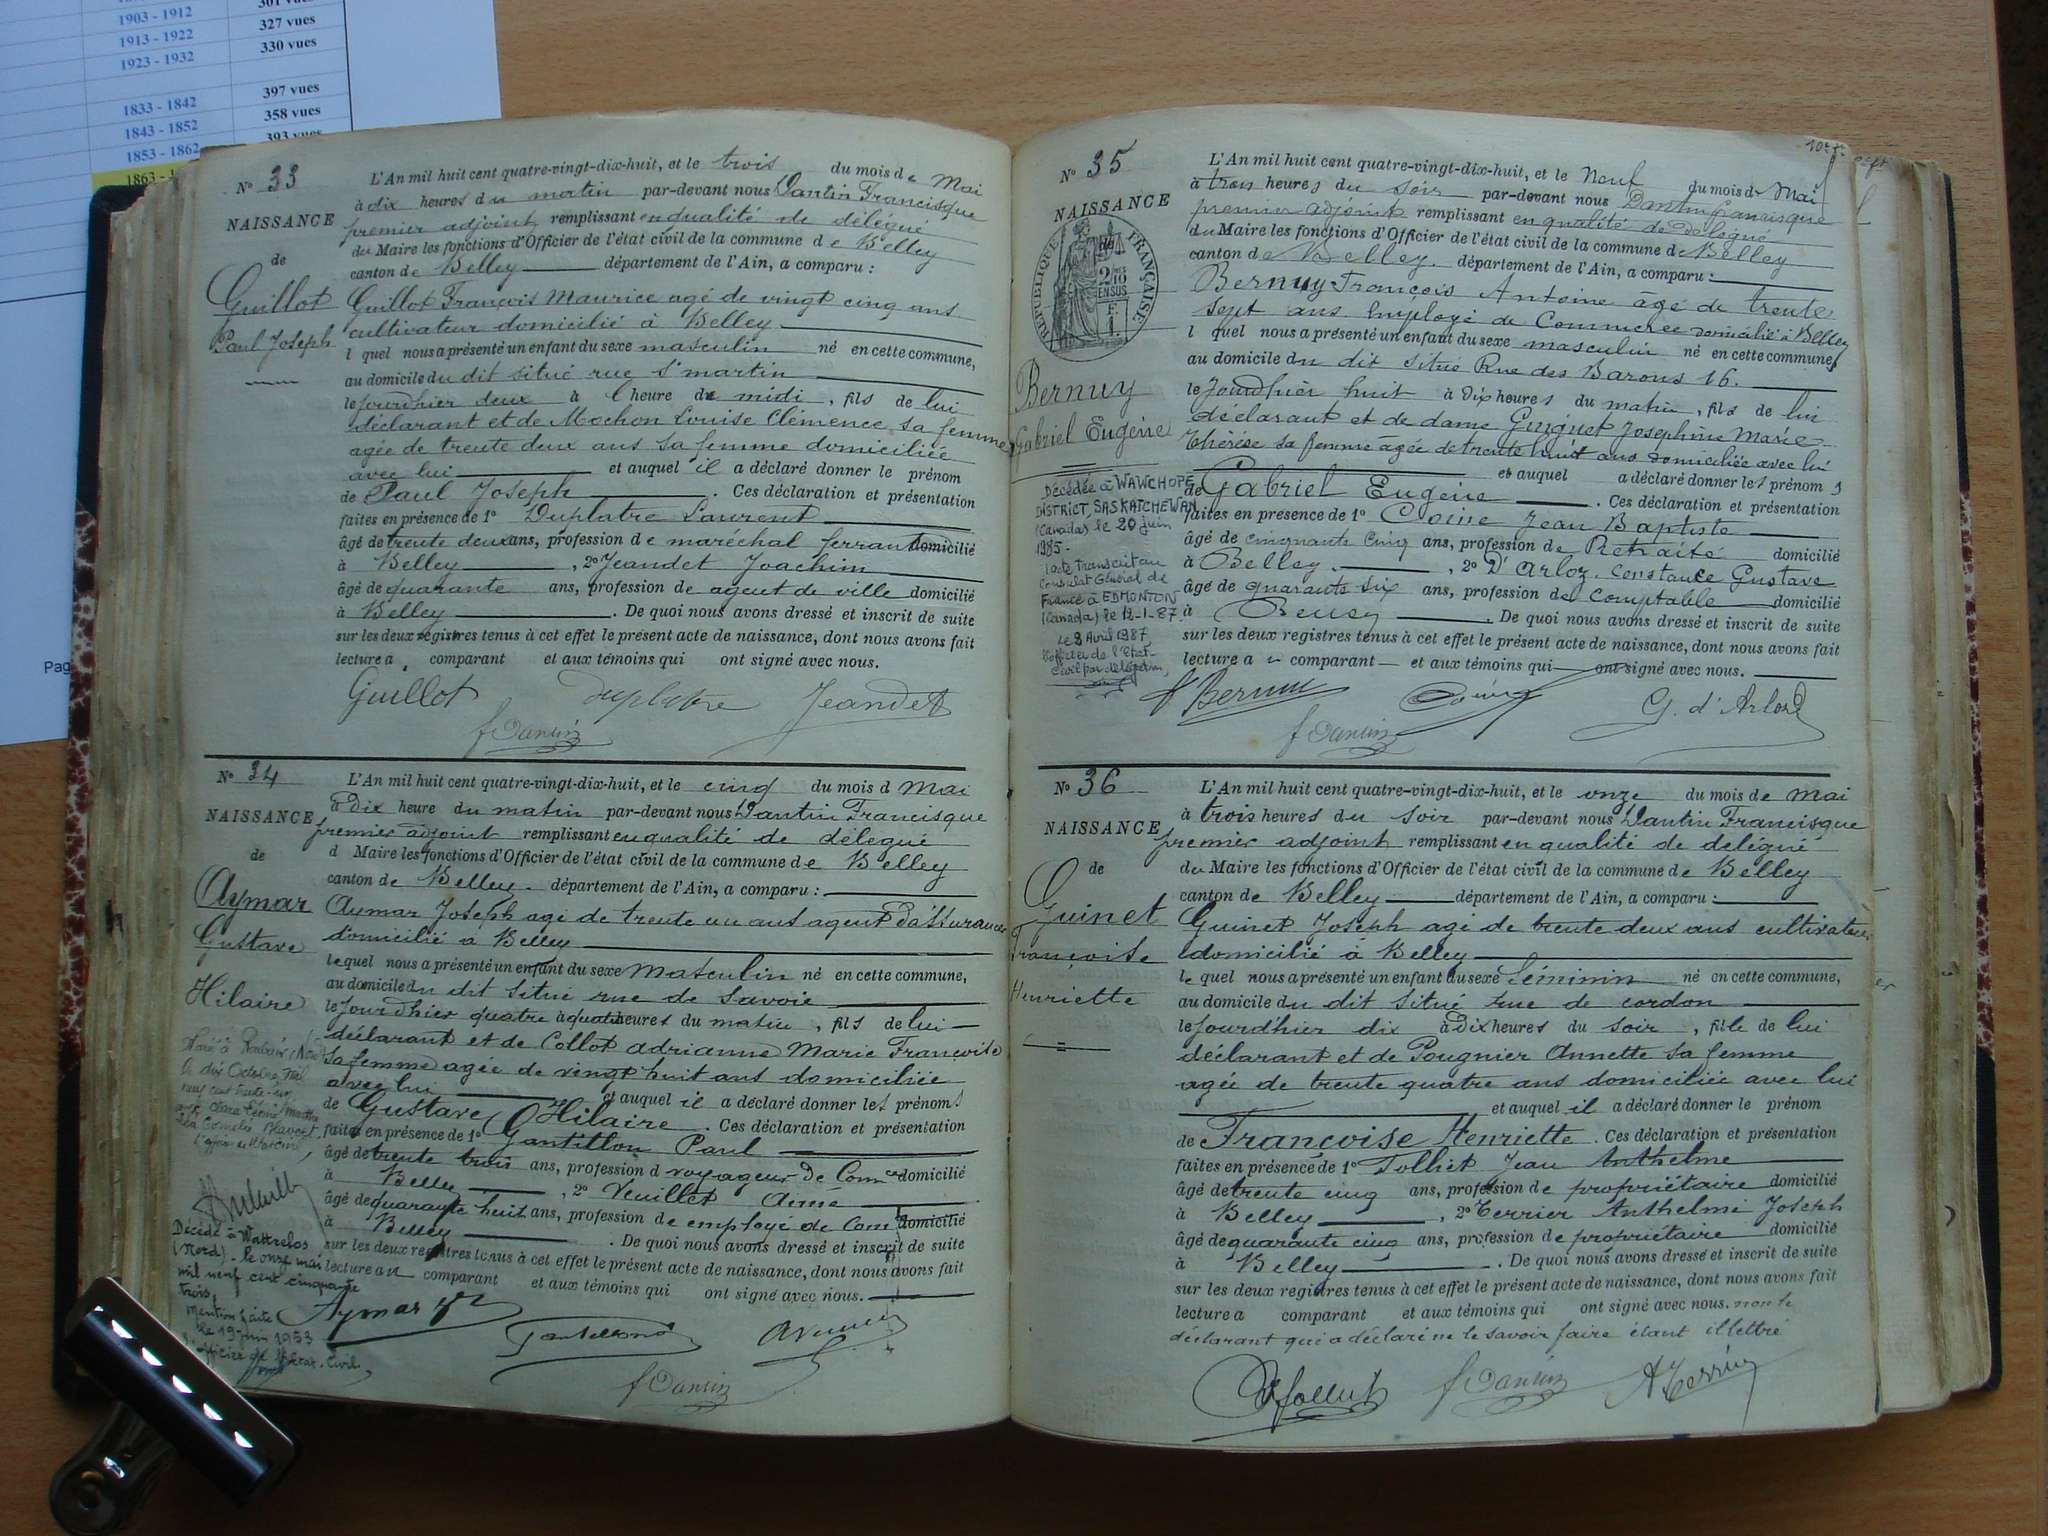 301 vues
1903 - 1912 327 vues
1913 - 1922 330 vues
1923 - 1932
397 vues
1833 - 1842 358 vues
1843 - 1852 393 vues
1853 - 1862
1863 -
Pag
N° 33
NAISSANCE
de
Guillot
Paul Joseph
L'An mil huit cent quatre-vingt-dix-huit, et le trois du mois de Mai
à dix heures du matin par-devant nous Dantin Francisque
premier adjoint remplissant en qualité de délégué
du Maire les fonctions d'Officier de l'état civil de la commune de Belley
canton de Belley département de l'Ain, a comparu :
Guillot François Maurice agé de vingt cinq ans
cultivateur domicilié à Belley
l quel nous a présenté un enfant du sexe masculin né en cette commune,
au domicile du dit situé rue St martin
le jourdhier deux à l heure de midi, fils de lui
déclarant et de Mochon Louise Clémence sa femme
agée de trente deux ans sa femme domiciliée
avec lui et auquel il a déclaré donner le prénom
de Paul Joseph. Ces déclaration et présentation
faites en présence de 1° Duplatre Laurent
âgé de trente deux ans, profession de maréchal ferrant domicilié
à Belley, 2° Jeandet Joachim
âgé de quarante ans, profession de agent de ville domicilié
à Belley. De quoi nous avons dressé et inscrit de suite
sur les deux registres tenus à cet effet le présent acte de naissance, dont nous avons fait
lecture a comparant et aux témoins qui ont signé avec nous.
Guillot duplatre Jeandet
f Dantin
N° 34
NAISSANCE
de
Aymar
Gustave
Hilaire
L'An mil huit cent quatre-vingt-dix-huit, et le cinq du mois d Mai
à Dix heure du matin par-devant nous Dantin Francisque
premier adjoint remplissant en qualité de délégué
d Maire les fonctions d'Officier de l'état civil de la commune de Belley
canton de Belley département de l'Ain, a comparu :
Aymar Joseph agé de trente un ans agent D'assurances
domicilié à Belley
le quel nous a présenté un enfant du sexe Masculin né en cette commune,
au domicile du dit situé rue de Savoie
le jourdhier quatre à quatre heures du matin, fils de lui
déclarant et de Collot adrianne Marie Françoise
sa femme agée de vingt huit ans domiciliée
avec lui et auquel il a déclaré donner les prénoms
de Gustave Hilaire. Ces déclaration et présentation
faites en présence de 1° Gantillon Paul
âgé de trente trois ans, profession d voyageur De Comce domicilié
à Belley, 2° Veuillet Aimé
âgé de quarante huit ans, profession de employé de Com domicilié
à Belley. De quoi nous avons dressé et inscrit de suite
sur les deux registres tenus à cet effet le présent acte de naissance, dont nous avons fait
lecture au comparant et aux témoins qui ont signé avec nous.
Marié à Roubaix (Nord)
le dix Octobre mil
neuf cent trente-un
Décédé à Wattrelos
(Nord) - le onze mai
mil neuf cent cinquante
trois
Mention faite
le 19 juin 1953
l'officier de l'Etat-Civil
Aymar
f Dantin
N° 35
NAISSANCE
RÉPUBLIQUE FRANÇAISE
2/10 EN SUS
Bernuy
Gabriel Eugène
L'An mil huit cent quatre-vingt-dix-huit, et le Neuf du mois d Mai
à trois heures du soir par-devant nous Dantin Francisque
premier adjoint remplissant en qualité de délégué
du Maire les fonctions d'Officier de l'état civil de la commune de Belley
canton de Belley. département de l'Ain, a comparu :
Bernuy François Antoine âgé de trente
sept ans Employé de Commerce domicilié à Belley
l quel nous a présenté un enfant du sexe masculin né en cette commune,
au domicile du dit situé Rue des Barons 16.
le Jourdhier huit à Dix heures du matin, fils de lui
déclarant et de dame Guiguet Josephine Marie
Thérèse sa femme âgée de trente huit ans domiciliée avec lui
et auquel a déclaré donner les prénoms
de Gabriel Eugène. Ces déclaration et présentation
faites en présence de 1° Coine Jean Baptiste
âgé de cinquante cinq ans, profession de Retraité domicilié
à Belley., 2° D'Arloz. Constance Gustave
âgé de quarante six ans, profession de Comptable domicilié
à Belley. De quoi nous avons dressé et inscrit de suite
sur les deux registres tenus à cet effet le présent acte de naissance, dont nous avons fait
lecture a u comparant et aux témoins qui ont signé avec nous.
Décédée à WAWCHOPE
DISTRICT, SASKATCHEWAN
(Canada) le 20 juin
1985.
(acte transcrit au
Consulat Général de
France à EDMONTON
(Canada) le 12-1-87.
Le 8 Avril 1987,
l'officier de l'Etat-
Civil par délégation,
Bernuy Coine G. d'Arloz
f Dantin
N° 36
NAISSANCE
de
Guinet
Françoise
Henriette
L'An mil huit cent quatre-vingt-dix-huit, et le onze du mois de Mai
à trois heures du soir par-devant nous Dantin Francisque
premier adjoint remplissant en qualité de délégué
du Maire les fonctions d'Officier de l'état civil de la commune de Belley
canton de Belley département de l'Ain, a comparu :
Guinet Joseph agé de trente deux ans cultivateur
domicilié à Belley
le quel nous a présenté un enfant du sexe féminin né en cette commune,
au domicile du dit situé rue de cordon
le jourd'hier dix à Dix heures du soir, fille de lui
déclarant et de Pougnier Annette sa femme
agée de trente quatre ans domiciliée avec lui
et auquel il a déclaré donner le prénom
de Françoise Henriette. Ces déclaration et présentation
faites en présence de 1° Tolliet Jean Anthelme
âgé de trente cinq ans, profession de propriétaire domicilié
à Belley, 2° Terrier Anthelme Joseph
âgé de quarante cinq ans, profession de propriétaire domicilié
à Belley. De quoi nous avons dressé et inscrit de suite
sur les deux registres tenus à cet effet le présent acte de naissance, dont nous avons fait
lecture a comparant et aux témoins qui ont signé avec nous. non le
déclarant qui a déclaré ne le savoir faire étant illettré
f Dantin